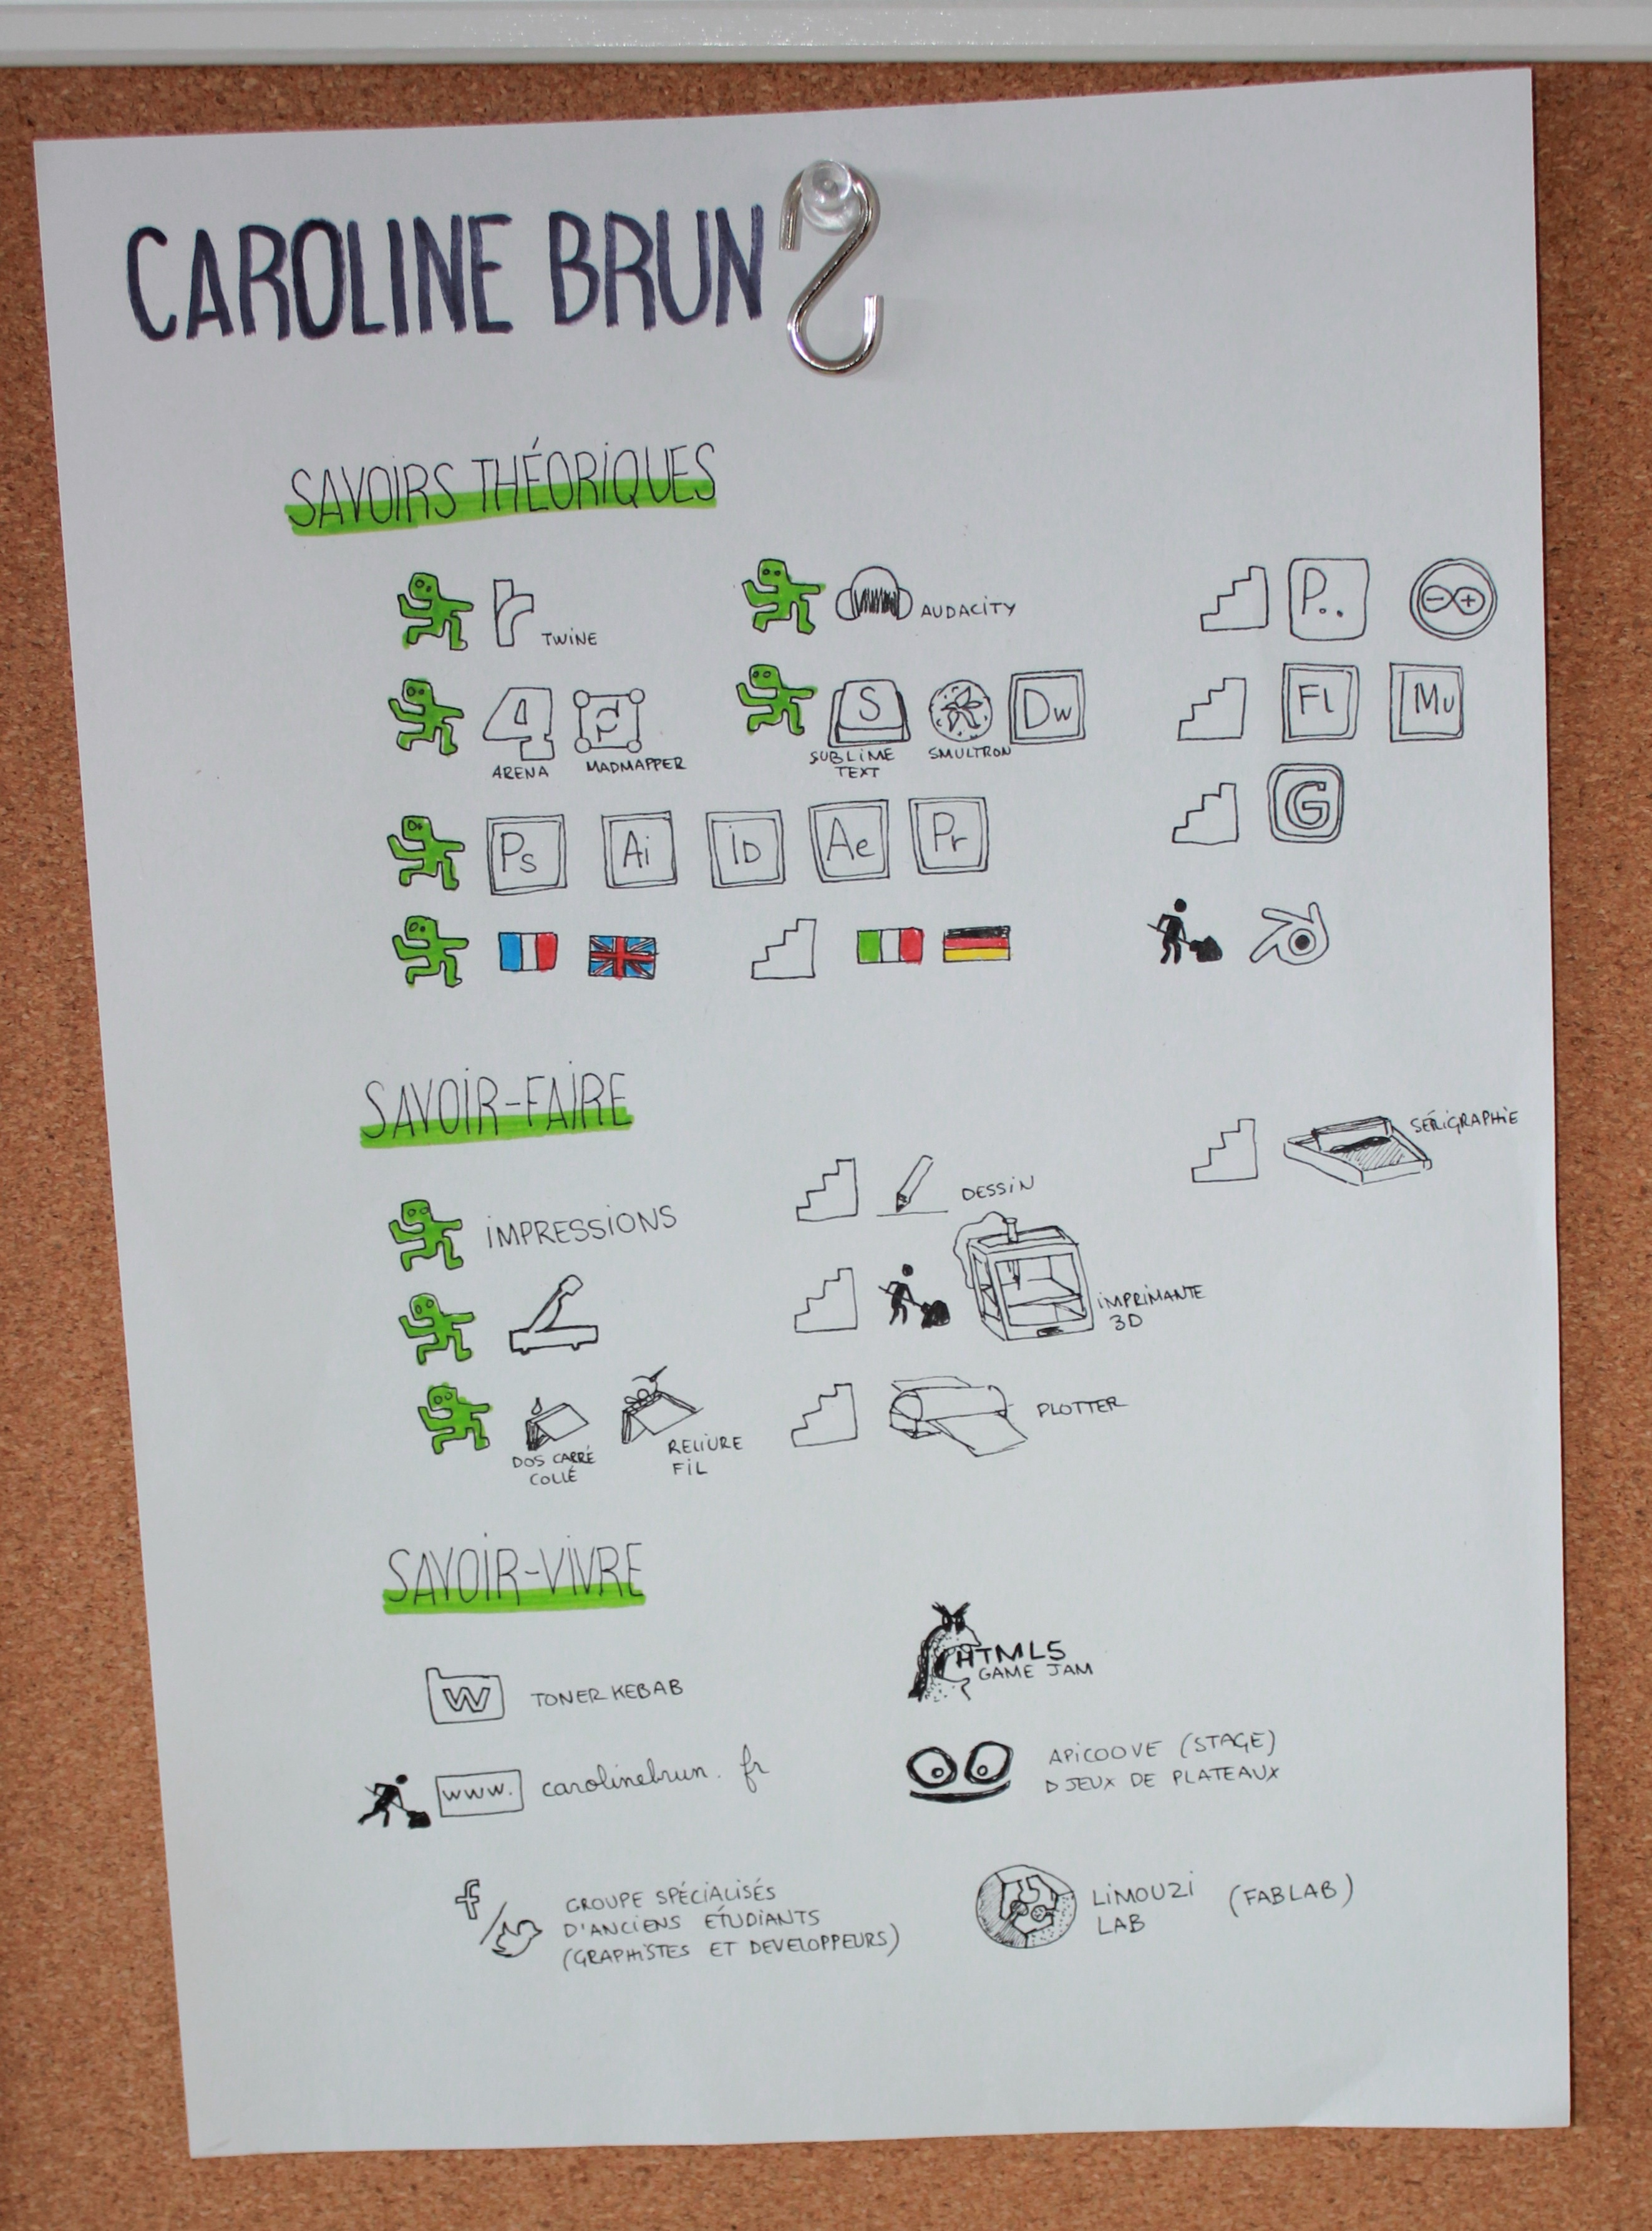 CAROLINE BRUN
SAVOIRS THÉORIQUES
TWINE
AUDACITY
P..
4
ARENA
MADMAPPER
S
SUBLIME
TEXT
SMULTRON
Dw
Fl
Mu
Ps
Ai
iD
Ae
Pr
G
SAVOIR-FAIRE
IMPRESSIONS
DESSIN
SÉRIGRAPHIE
IMPRIMANTE
3D
DOS CARRÉ
COLLÉ
RELIURE
FIL
PLOTTER
SAVOIR-VIVRE
W
TONER KEBAB
HTML5
GAME JAM
www.
carolinebrun.fr
APICOOVE (STAGE)
JEUX DE PLATEAUX
f
GROUPE SPÉCIALISÉS
D'ANCIENS ÉTUDIANTS
(GRAPHISTES ET DEVELOPPEURS)
LIMOUZI (FABLAB)
LAB